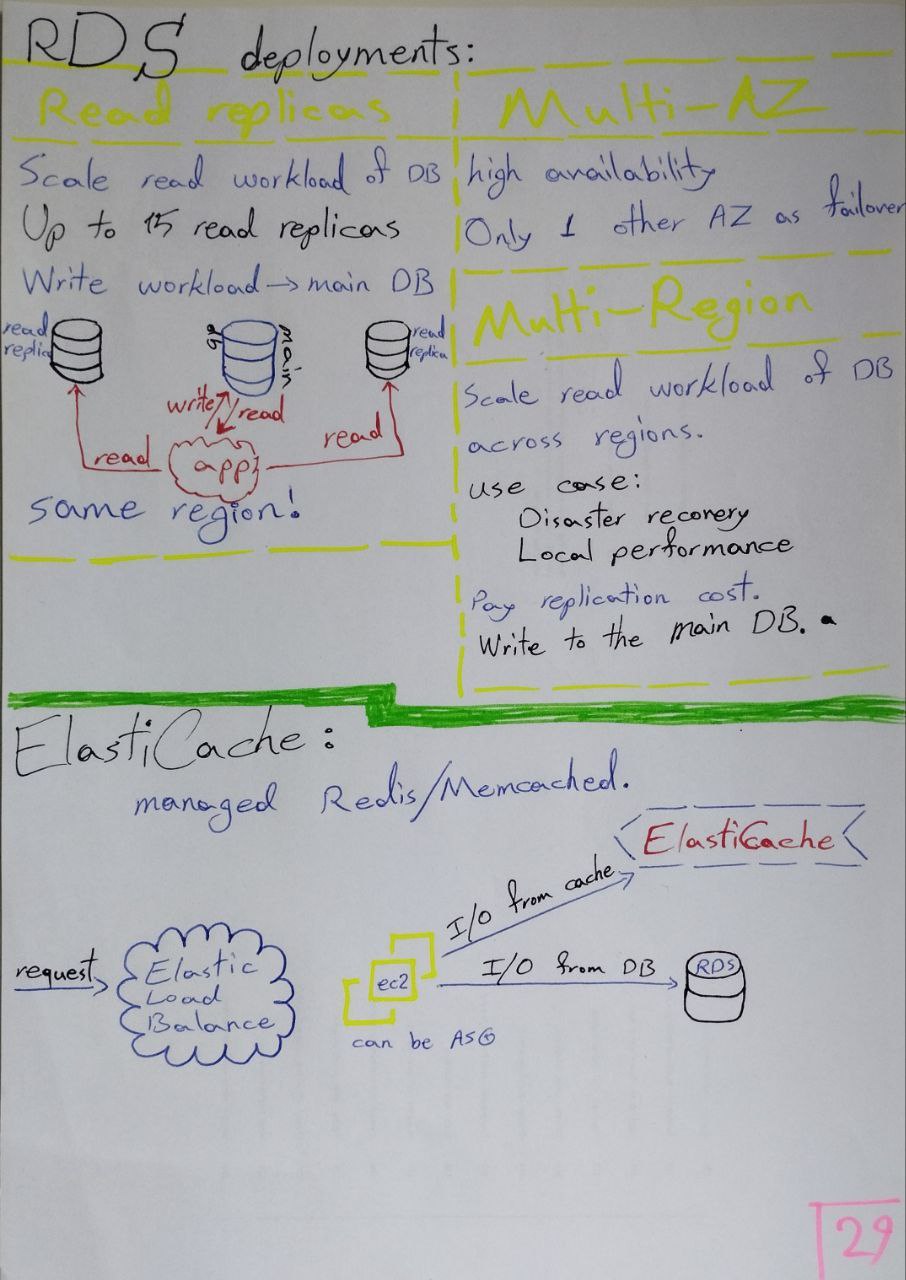 RDS deployments:
Read replicas
Scale read workload of DB
Up to 15 read replicas
Write workload → main DB
read
replica
db
main
read
replica
write
read
read
read
app
same region!
Multi-AZ
high availability
Only 1 other AZ as failover
Multi-Region
Scale read workload of DB
across regions.
use case:
Disaster recovery
Local performance
Pay replication cost.
Write to the main DB.
ElastiCache:
managed Redis/Memcached.
ElastiCache
I/O from cache
request
Elastic
Load
Balance
ec2
I/O from DB
RDS
can be ASG
29